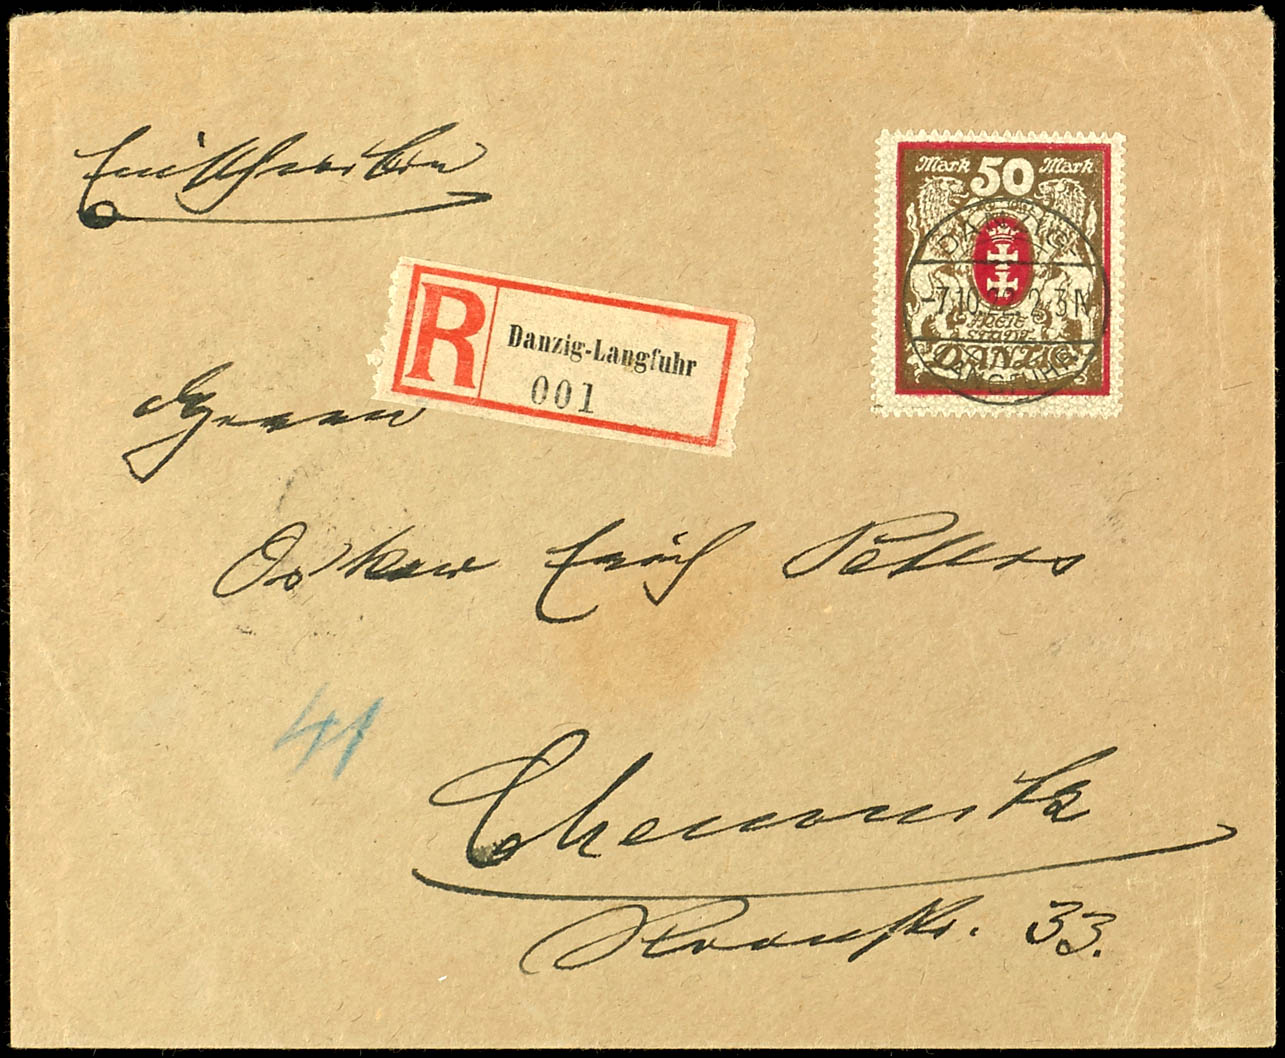 Einschreiben
Mark 50 Mark
DANZIG
-7.10.22 2-3N
LANGFUHR
FREIE
STADT
DANZIG
R Danzig-Langfuhr
001
Herrn
Oskar Erich Peters
41
Chemnitz
33.